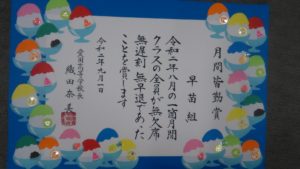 月間皆勤賞
早苗組
令和二年八月の一箇月間
クラスの全員が無欠席
無遅刻無早退であった
ことを賞します
令和二年九月一日
高等学校長
織田奈美